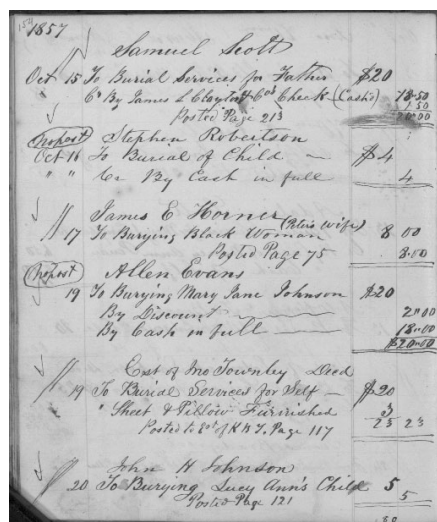 154
1857
Samuel Scott
Oct 15 To Burial Services for Father $20
Cr By James L Clayton & Cos Check (Cash) 18.50
1.50
Posted Page 213 20.00
(No post) Stephen Robertson
Oct 16 To Burial of Child — $4
" " Cr By Cash in full 4
James E Horner
(Peters Wife)
17 To Burying Black Woman 8 00
Posted Page 75 8.00
(No post) Allen Evans
19 To Burying Mary Jane Johnson $20
By Discount 2.00
By Cash in full 18.00
$20.00
Est of Jno Townley Deed
19 To Burial Services for Self — $20
" Sheet & Pillow Furnished 3
23 23
Posted to Est of Page 117
John H Johnson
20 To Burying Lucy Ann's Child 5
5
Posted Page 121